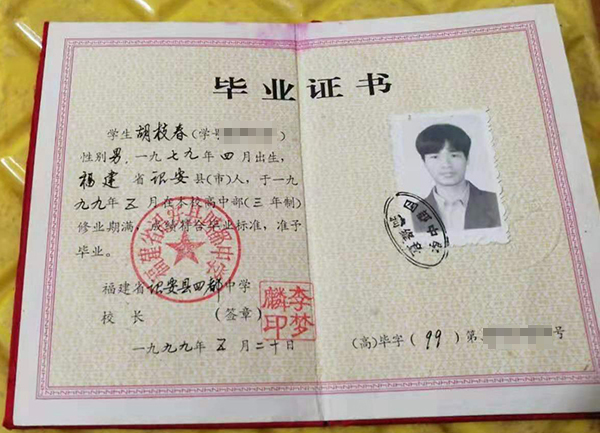 毕业证书
学生胡枝春(学号      )
性别男，一九七九年四月出生，
福建省诏安县(市)人，于一九
九九年五月在本校高中部(三年制)
修业期满，成绩符合毕业标准，准予
毕业。
福建省诏安县四都中学
校 长 (签章)
李梦麟印
一九九九年五月二十日
福建省诏安县四都中学
(高)毕字(99)第      号